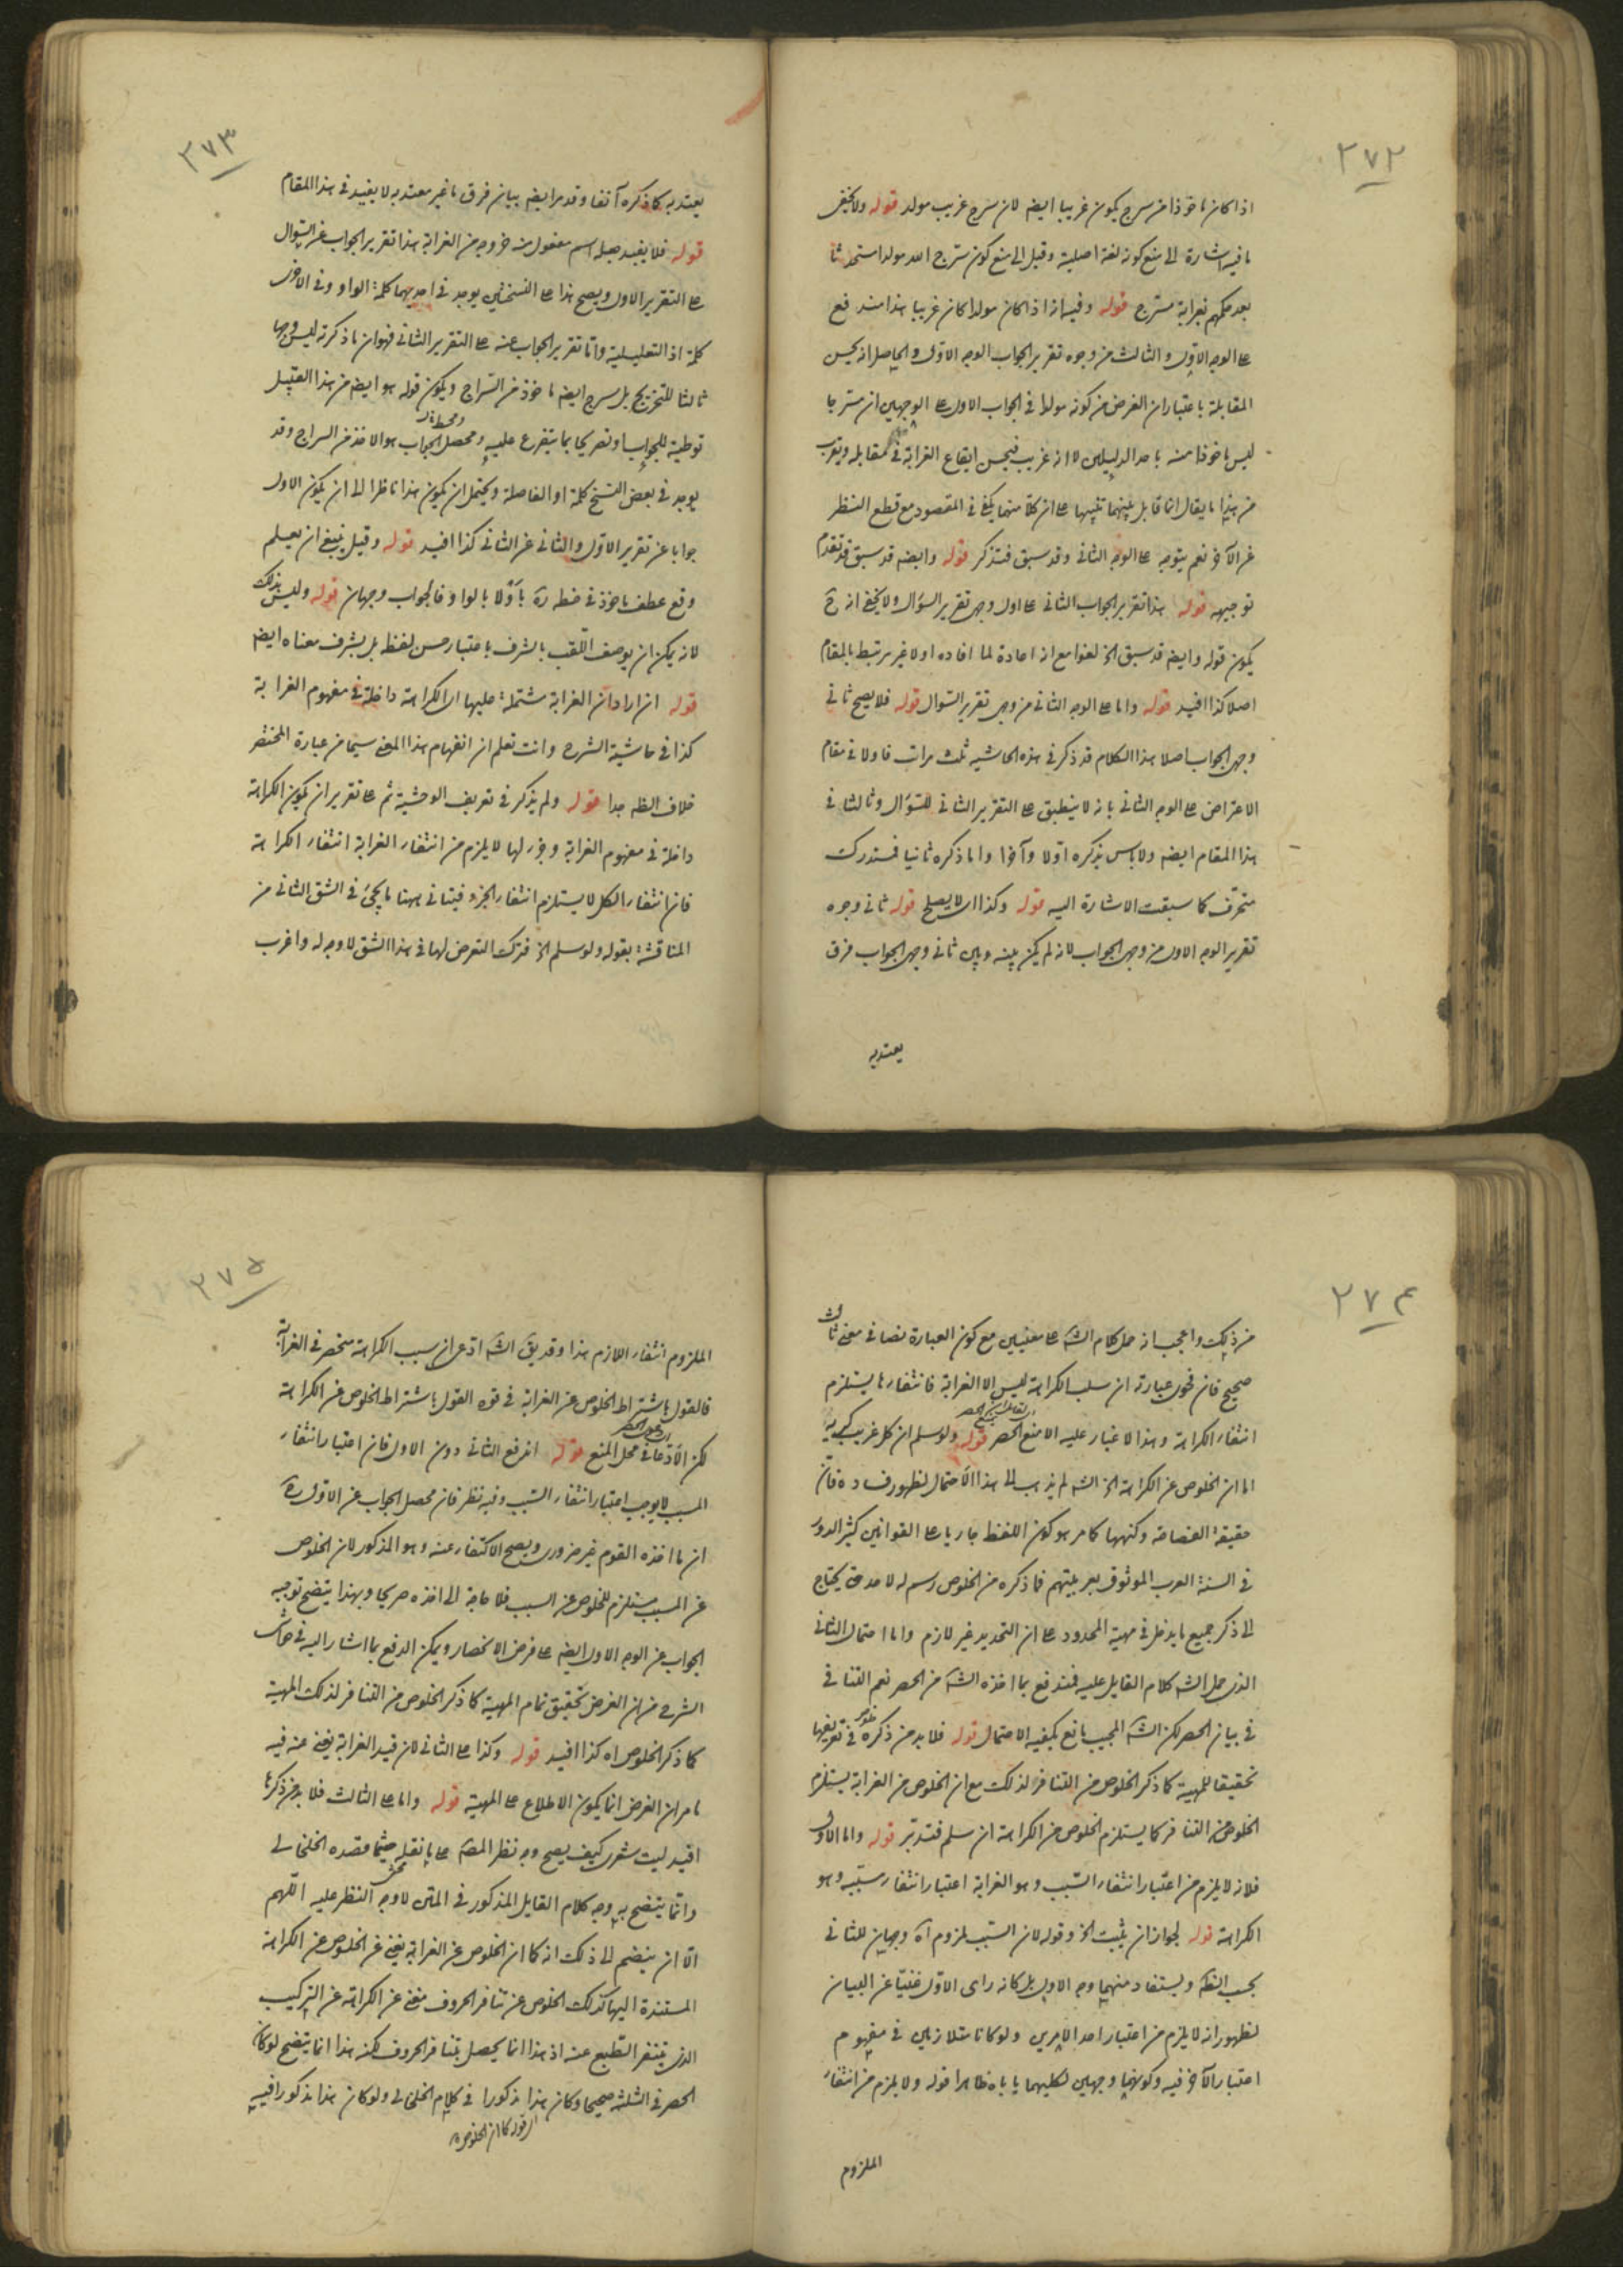 ٢٧٢
اذا كان ماخوذا من سرج يكون غريبا ايضه لان سرج غريب مولد قوله ولا يخفى
ما فيه اشارة الى منع كونه لغة اصلية وقيل الى منع كون سرج الله مولدا استحدثا
بعد حكمهم بغرابة مسرج قوله وفيه انه اذا كان مولدا كان غريبا هذا مندفع
على الوجه الاول والثالث من وجوه تقرير الجواب الوجه الاول والحاصل انه يحسن
المقابلة باعتبار ان الغرض من كونه مولدا في الجواب الاول على الوجهين ان مسرجا
ليس ماخوذا منه باحد الدليلين لا انه غريب فيحسن ايقاع الغرابة في مقابله ويقرب
من هذا ما يقال انما قابل بينهما تنبيها على ان كلا منهما يكفي في المقصود مع قطع النظر
عن الآخر نعم يتوجه على الوجه الثاني وقد سبق فتذكر قوله وايضه قد سبق قد تقدم
توجيهه قوله هذا تقرير الجواب الثاني على اول وجهى تقرير السؤال ولا يخفى انه ح
يكون قوله وايضه قد سبق الخ لغوا مع انه اعادة لما افاده اولا غير مرتبط بالمقام
اصلا كذا افيد قوله واما على الوجه الثاني من وجهى تقرير السؤال قوله فلا يصح ثانى
وجهى الجواب اصلا هذا الكلام قد ذكر في هذه الحاشيه ثلث مرات فاولا في مقام
الاعتراض على الوجه الثاني بانه لا ينطبق على التقرير الثاني للسؤال وثالثا في
هذا المقام ايضه ولا باس بذكره اولا وآخرا واما ذكره ثانيا فمستدرك
منحرف كما سبقت الاشارة اليه قوله وكذا اى لا يصلح قوله ثانى وجوه
تقرير الوجه الاول من وجهى الجواب لانه لم يكن بينه وبين ثانى وجهى الجواب فرق
يعتد به
٢٧٣
يعتد به كما ذكره آنفا وقد مر ايضه بيان فرق ما غير معتد به لا يفيد في هذا المقام
قوله فلا يفيد جعله اسم مفعول منه خروجه من الغرابة هذا تقرير الجواب عن السؤال
على التقرير الاول ويصح هذا على النسختين يوجد في احديهما كلمة الواو وفي الاخرى
كلمة اذ التعليلية واما تقرير الجواب عنه على التقرير الثاني فهو ان ما ذكرته ليس وجها
ثالثا للتخريج بل سرج ايضه ماخوذ من السراج ويكون قوله هو ايضه من هذا القبيل
توطية للجواب او تصريحا بما يتفرع عليه ومحصل الجواب هو الاخذ من السراج وقد
يوجد في بعض النسخ كلمة او الفاصلة ويحتمل ان يكون هذا ناظرا الى ان يكون الاول
جوابا عن تقرير الاول والثاني عن الثاني كذا افيد قوله وقيل ينبغي ان يعلم
وقع عطف ماخوذ في باولا بالواو فالجواب وجهان قوله وليس بذلك
لانه يمكن ان يوصف اللقب بالشرف باعتبار حسن لفظه بل بشرف معناه ايضه
قوله ان اراد ان الغرابة مشتملة عليها اى الكراهة داخلة في مفهوم الغرابة
كذا في حاشية الشرح وانت تعلم ان انفهام هذا المعنى سيما من عبارة المختصر
خلاف الظه جدا قوله ولم يذكر في تعريف الوحشية ثم على تقرير ان يكون الكراهة
داخلة في مفهوم الغرابة وجزء لها لا يلزم من انتفاء الغرابة انتفاء الكراهة
فان انتفاء الكل لا يستلزم انتفاء الجزء فيتاتى ههنا ما يجئ في الشق الثاني من
المناقشة بقوله ولو سلم الخ فترك التعرض لها في هذا الشق لا وجه له واغرب
٢٧٤
من ذلك واعجب انه حمل كلام الشه على معنيين مع كون العبارة نصا في معنى ثالث
صحيح فان فحوى عبارته ان سبب الكراهة ليس الا الغرابة فانتفاؤها يستلزم
انتفاء الكراهة وهذا لا غبار عليه الا منع الحصر قوله ولو سلم ان كل غريب كريه
اما ان الخلوص عن الكراهة الخ الشه لم يذهب الى هذا الاحتمال لظهور فساده فان
حقيقة الفصاحة وكنهها كما مر هو كون اللفظ جاريا على القوانين كثير الدور
في السنة العرب الموثوق بعربيتهم فما ذكره من الخلوص رسم له لا حد حتى يحتاج
الى ذكر جميع ما يدخل في مهية المحدود على ان التحديد غير لازم واما احتمال الثاني
الذى حمل الشه كلام القايل عليه فمندفع بما اخذه الشه من الحصر نعم التنافى
في بيان الحصر لكن الشه المجيب مانع يكفيه الاحتمال قوله فلا بد من ذكره في تعريفها
تحقيقا للمهية كما ذكر الخلوص من التنافر لذلك مع ان الخلوص من الغرابة يستلزم
الخلوص من التنافر كما يستلزم الخلوص من الكراهة ان سلم فتدبر قوله واما الاول
فلانه لا يلزم من اعتبار انتفاء السبب وهو الغرابة اعتبار انتفاء مسببه وهو
الكراهة قوله لجواز ان يثبت الخ وقوله لان السبب ملزوم آه وجهان للثاني
بحسب الظه ويستفاد منهما وجه الاول بل كانه راى الاول غنيا عن البيان
لظهور انه لا يلزم من اعتبار احد الامرين ولو كانا متلازمين في مفهوم
اعتبار الآخر فيه وكونهما وجهين لكليهما ياباه ظاهرا قوله ولا يلزم من انتفاء
الملزوم
٢٧٥
الملزوم انتفاء اللازم هذا وقد يق الشه ادعى ان سبب الكراهة منحصر في الغرابة
فالقول باشتراط الخلوص عن الغرابة في قوة القول باشتراط الخلوص عن الكراهة
لكن الادعاء في محل المنع قوله اندفع الثاني دون الاول فان اعتبار انتفاء
المسبب لا يوجب اعتبار انتفاء السبب وفيه نظر فان محصل الجواب عن الاول ح
ان ما اخذه القوم غير ضرورى ويصح الاكتفاء عنه وهو المذكور لان الخلوص
عن المسبب مستلزم للخلوص عن السبب فلا حاجة الى اخذه صريحا وبهذا يتضح توجيه
الجواب عن الوجه الاول ايضه على فرض الانحصار ويمكن الدفع بما اشار اليه في حواشى
الشرح من ان الغرض تحقيق تمام المهية كما ذكر الخلوص من التنافر لذلك المهية
كما ذكر الخلوص اه كذا افيد قوله وكذا على الثاني لان قيد الغرابة يغنى عنه فيه
ما مر ان الغرض انما يكون الاطلاع على المهية قوله واما على الثالث فلا بد من ذكرها
افيد ليت شعرى كيف يصح وجه نظر المصه على ما نقله حيثما قصده الخلخالى
وانما يتضح به وجه كلام القايل المذكور في المتن لا وجه النظر عليه اللهم
الا ان ينضم الى ذلك انه كما ان الخلوص عن الغرابة يغنى عن الخلوص عن الكراهة
المستندة اليها كذلك الخلوص عن تنافر الحروف مغنى عن الكراهة عن التركيب
الذى يتنفر الطبع عنه اذ هذا انما يحصل بتنافر الحروف لكنه هذا انما يتضح لو كان
الحصر في الثلثة صحيحا وكان هذا مذكورا في كلام الخلخالى ولو كان هذا مذكورا فيه
اى قوله كما ان الخلوص